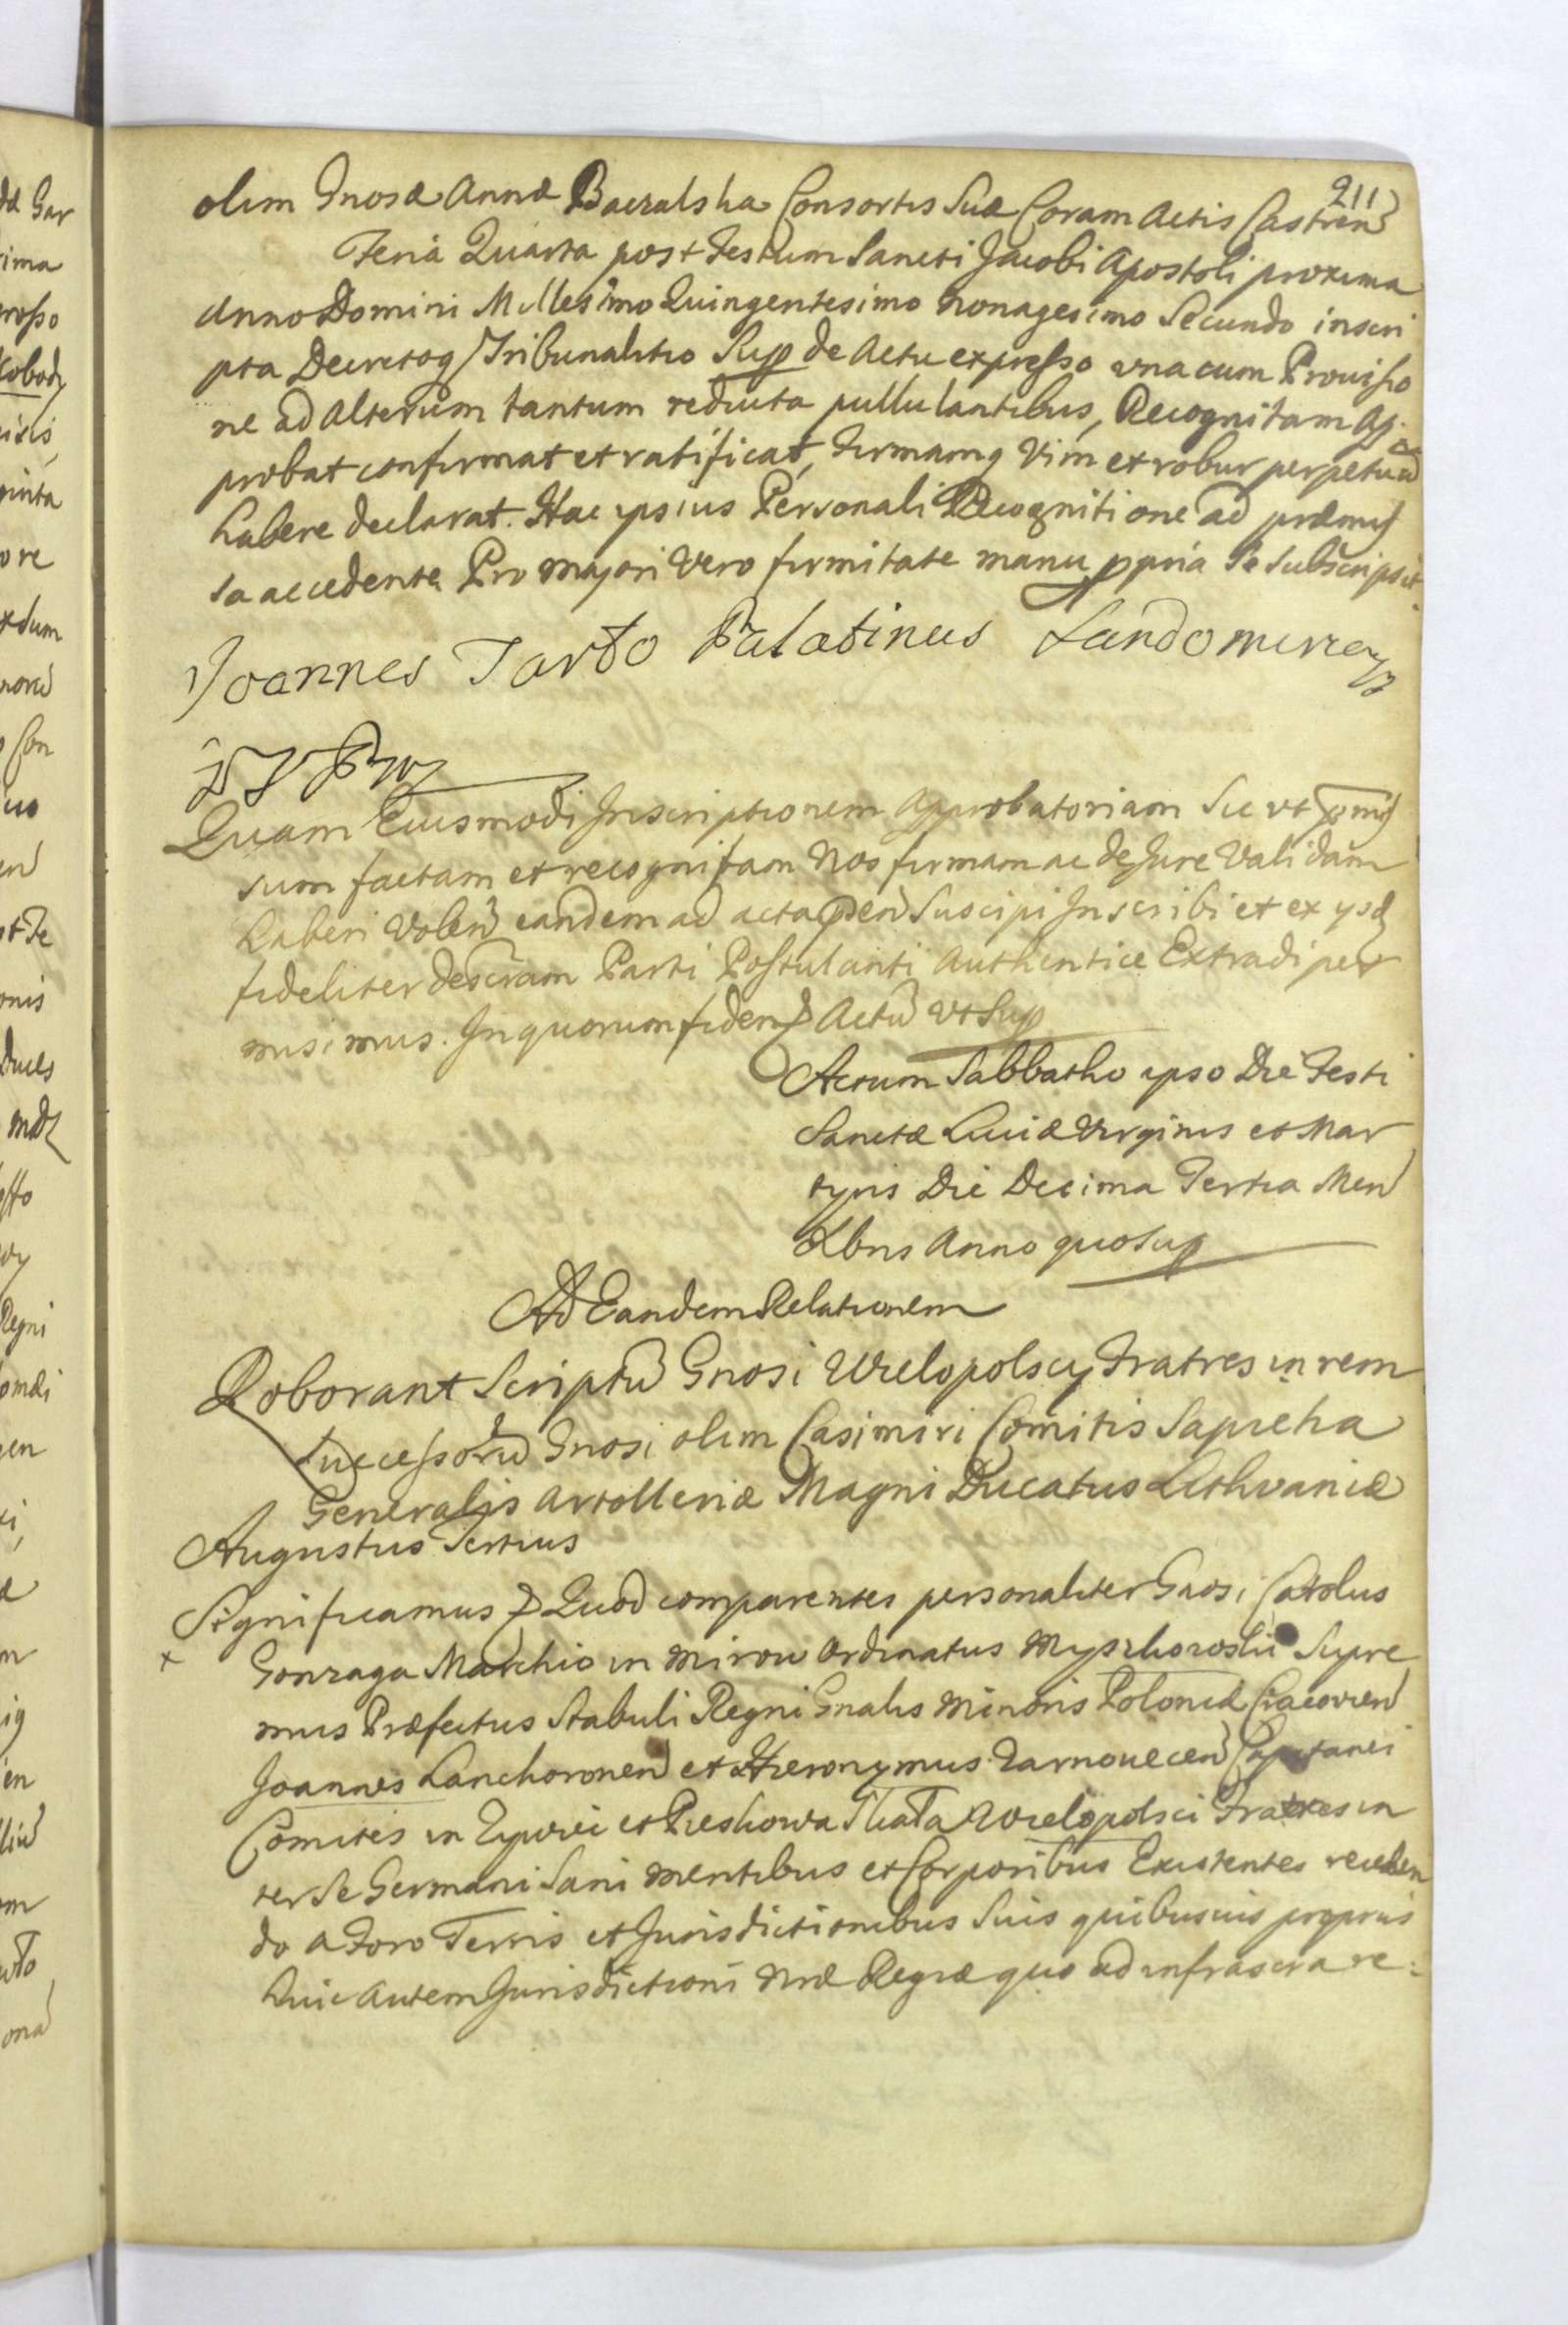 211
olim Gnosæ Annæ Baczalska Consortis Suæ Coram Actis Castren
Feria Quarta post Festum Sancti Jacobi Apostoli proxima
Anno Domini Millesimo Quingentesimo Nonagesimo Secundo inscri
pta Decretoq Tribunalitio Sup de Actu expresso una cum Provisio
ne ad Alterum tantum reducta pullulantibus, Recognitam Ap
probat confirmat et ratificat, firmamq Vim et robur perpetuu
habere declarat. Hac ipsius Personali Recognitione ad præmis
sa accedente Pro majori Vero firmitate manu ppria Se Subscripsit.
Joannes Tarło Palatinus Sandomirien

Quam Eiusmodi Inscriptionem Approbatoriam Sic ut præmis
sum factam et recognitam Nos firmam ac de Jure Validam
haberi Volen eandem ad acta pnen Suscipi Inscribi et ex ysd
fideliter descram Parti Postulanti Authentice Extradi per
misimus. In quorum fidem Actu ut Sup
Actum Sabbatho ipso Die Festi
Sanctæ Luciæ Virginis et Mar
tyris Die Decima Tertia Men
Xbris Anno quo Sup
Ad Eandem Relationem
Roborant Scriptu Gnosi Wielopolscy Fratres in rem
Successoru Gnosi olim Casimiri Comitis Sapieha
Generalis Artolleriæ Magni Ducatus Lithvaniæ
Augustus Tertius
Significamus Quod comparentes personaliter Gnosi Carolus
Gonzaga Marchio in Mirow Ordinatus Myszkowski Supre
mus Præfectus Stabuli Regni Gnalis Minoris Poloniæ Cracovien
Joannes Lanckoronen et Hieronymus Zarnovecen Capitanei
Comites in Zywiec et Pieskowa Skała Wielopolsci Fratres in
ter Se Germani Sani Mentibus et Corporibus Existentes receden
do a Foro Terris et Jurisdictionibus Suis quibusvis propriis
huic autem Jurisdictioni Nræ Regiæ quo ad infrascra re: